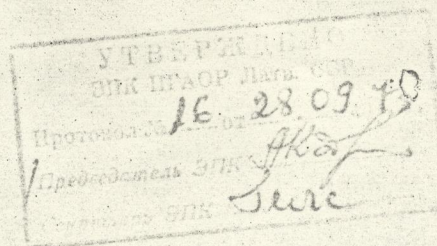 УТВЕРЖДАЮ
ЭПК ЦГАОР Латв. ССР
Протокол № 16 от 28 09
Председатель ЭПК
Секретарь ЭПК